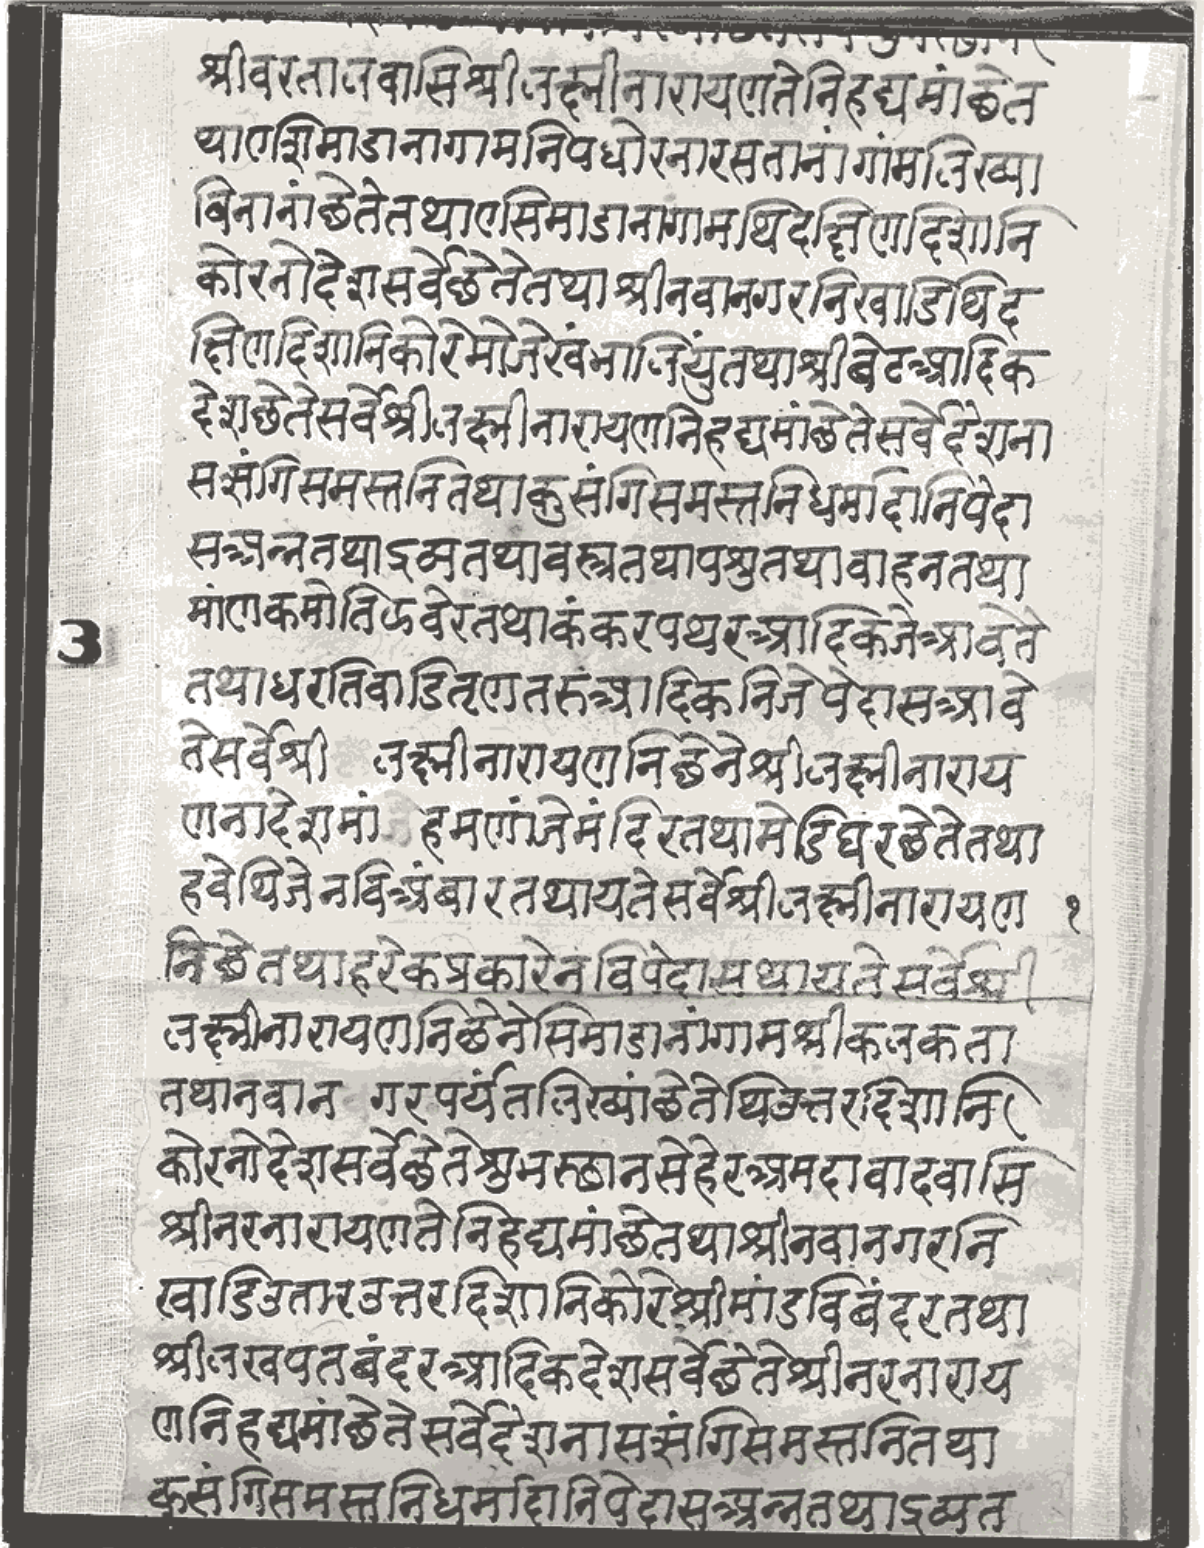 श्रीवरतालवासिश्रीलक्ष्मीनारायणतेनिहद्यमांछेत
थाएशिमाडानागामनिपधोरनारसतानांगांमलिख्या
विनानांछेतेतथाएसिमाडानागामथिदक्षिणदिशानि
कोरनोदेशसर्वेछेतेतथाश्रीनवानगरनिखाडिथिद
क्षिणदिशानिकोरेमोजेखंभालियुंतथाश्रीबेटआदिक
देशछेतेसर्वेश्रीलक्ष्मीनारायणनिहद्यमांछेतेसर्वेदेशना
सत्संगिसमस्तनितथाकुसंगिसमस्तनिधर्मादानिपेदा
सअन्नतथाद्रव्यतथावस्त्रतथापशुतथावाहनतथा
मांणकमोतिझवेरतथाकंकरपथरआदिकजेआवेते
तथाधरतिवाडितृणतरुआदिकनिजेपेदासआवे
तेसर्वेश्री लक्ष्मीनारायणनिछेनेश्रीलक्ष्मीनाराय
णनादेशमां हमणांजेमंदिरतथामेडिघरछेतेतथा
हवेथिजेनविआंबारतथायतेसर्वेश्रीलक्ष्मीनारायण १
3
निछेतथाहरेकप्रकारेनविपेदासथायतेसर्वेश्री
लक्ष्मीनारायणनिछेनेसिमाडानांगामश्रीकलकता
तथानवान गरपर्यंतलिख्यांछेतेथिउत्तरदिशानि
कोरनोदेशसर्वेछेतेशुभस्छानसेहेरअमदावादवासि
श्रीनरनारायणतेनिहद्यमांछेतथाश्रीनवानगरनि
खाडिउतारउत्तरदिशानिकोरेश्रीमांडविबंदरतथा
श्रीलखपतबंदरआदिकदेशसर्वेछेतेश्रीनरनाराय
णनिहद्यमांछेतेसर्वेदेशनासत्संगिसमस्तनितथा
कुसंगिसमस्तनिधर्मादानिपेदासअन्नतथाद्रव्यत